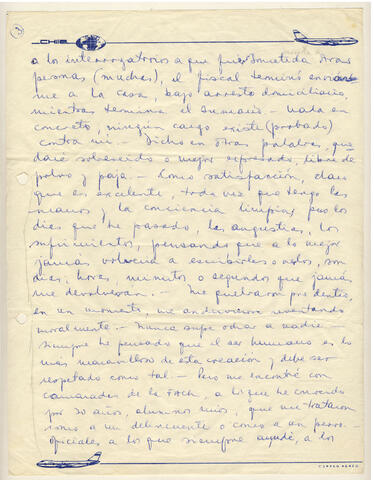 3
CHE
a los interrogatorios a que fue sometida otras
personas (muchas), el fiscal terminó enviando
me a la casa, bajo arresto domiciliario,
mientras termina el sumario.- Nada en
concreto, ningún cargo existe (probado)
contra mí.- Dicho en otras palabras, que
daré sobreseido o mejor expresado, libre de
polvo y paja.- Como satisfacción, claro
que es excelente, toda vez que tengo las
manos y la conciencia limpias, pero los
días que he pasado, las angustias, los
sufrimientos, pensando que a lo mejor
jamás volvería a escribirles a Uds, son
días, horas minutos o segundos que jamás
me devolverán.- Me quebraron por dentro,
en un momento, me anduvieron reventando
moralmente.- Nunca supe odiar a nadie
siempre he pensado que el ser humano es lo
más maravilloso de esta creación y debe ser
respetado como tal.- Pero me encontré con
camaradas de la FACH, a los que he conocido
por 20 años, alumnos míos, que me trataron
como a un delincuente o como a un perro.-
oficiales a los que siempre ayudé, a los
CORREO AEREO